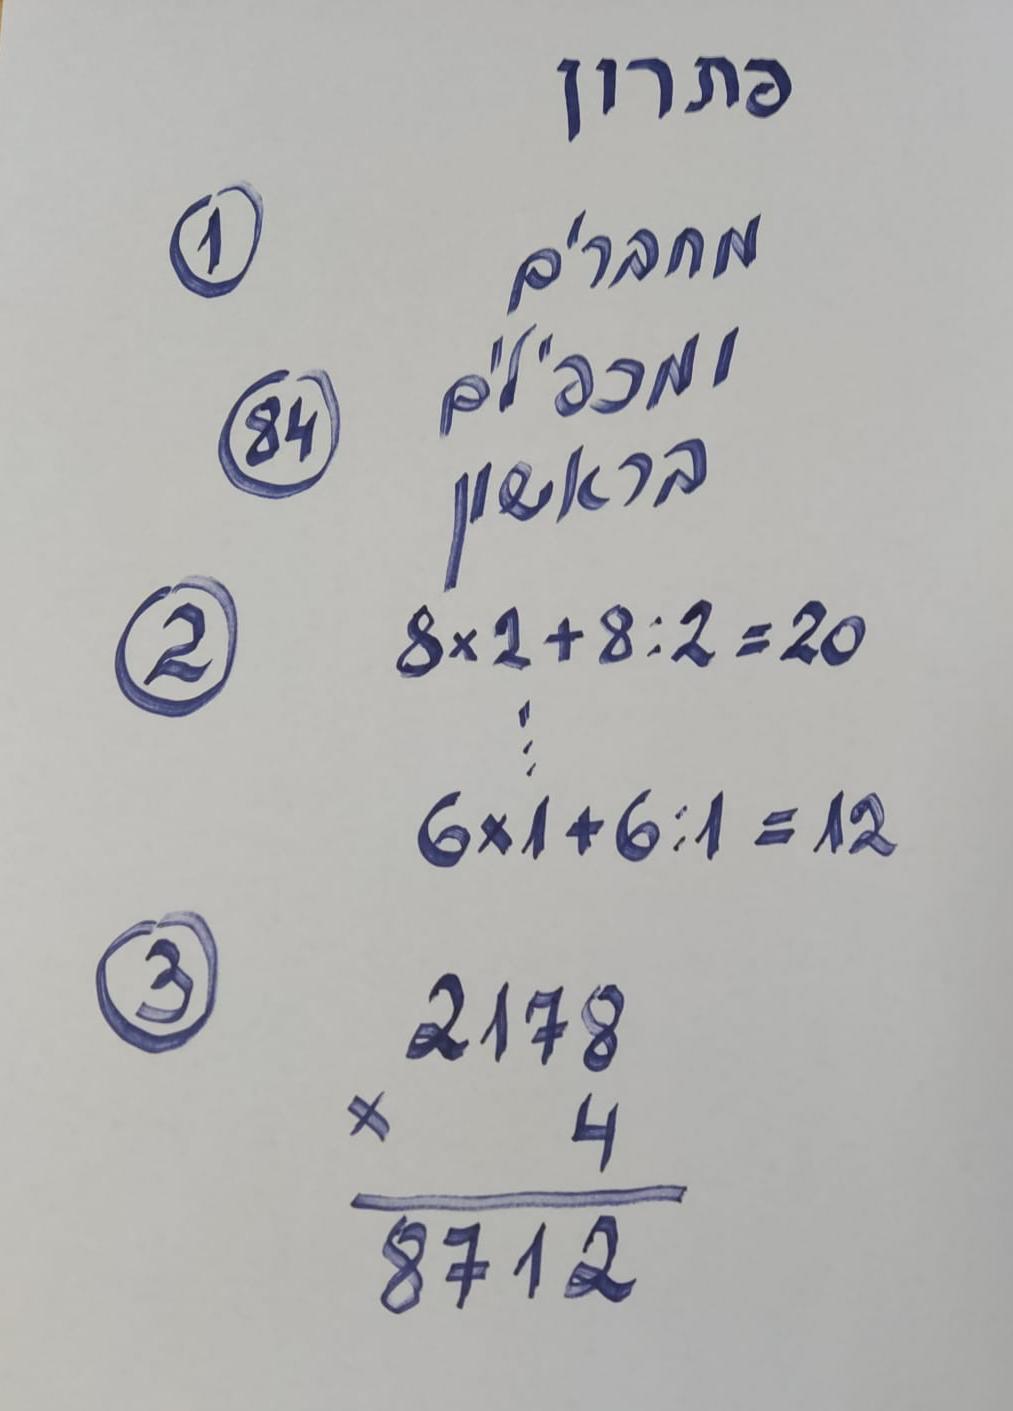 פתרון
1 מחברים
84 ומכפילים
בראשון
2 8×2+8:2=20
⋮
6×1+6:1=12
3 2178
× 4
8712